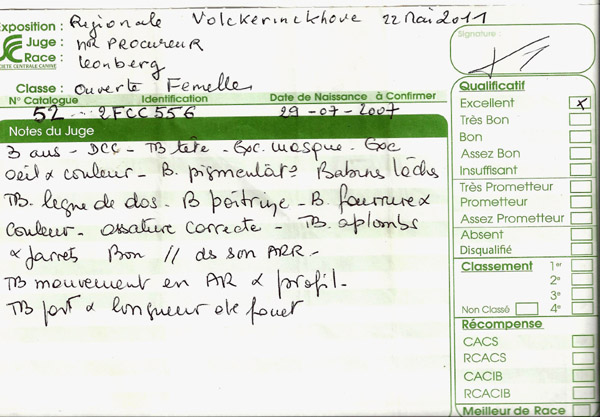 Exposition : Regionale Volckerinckhove 22 Mai 2011
Juge : Mr PROCUREUR
Race : Leonberg
SOCIÉTÉ CENTRALE CANINE
Classe : Ouverte Femelles
N° Catalogue Identification Date de Naissance à Confirmer
52 2FCC556 29-07-2007
Notes du Juge
3 ans - DCC - TB tête - Exc. masque - Exc
oeil & couleur - B. pigmentat° Babines lâches
TB. ligne de dos - B poitrine - B. fourrure &
couleur - ossature correcte - TB. aplombs
& jarrets Bon // ds son ARR -
TB mouvement en AR & profil -
TB port & longueur de fouet
Signature :
Qualificatif
Excellent x
Très Bon
Bon
Assez Bon
Insuffisant
Très Prometteur
Prometteur
Assez Prometteur
Absent
Disqualifié
Classement 1er
2e
3e
Non Classé 4e
Récompense
CACS
RCACS
CACIB
RCACIB
Meilleur de Race